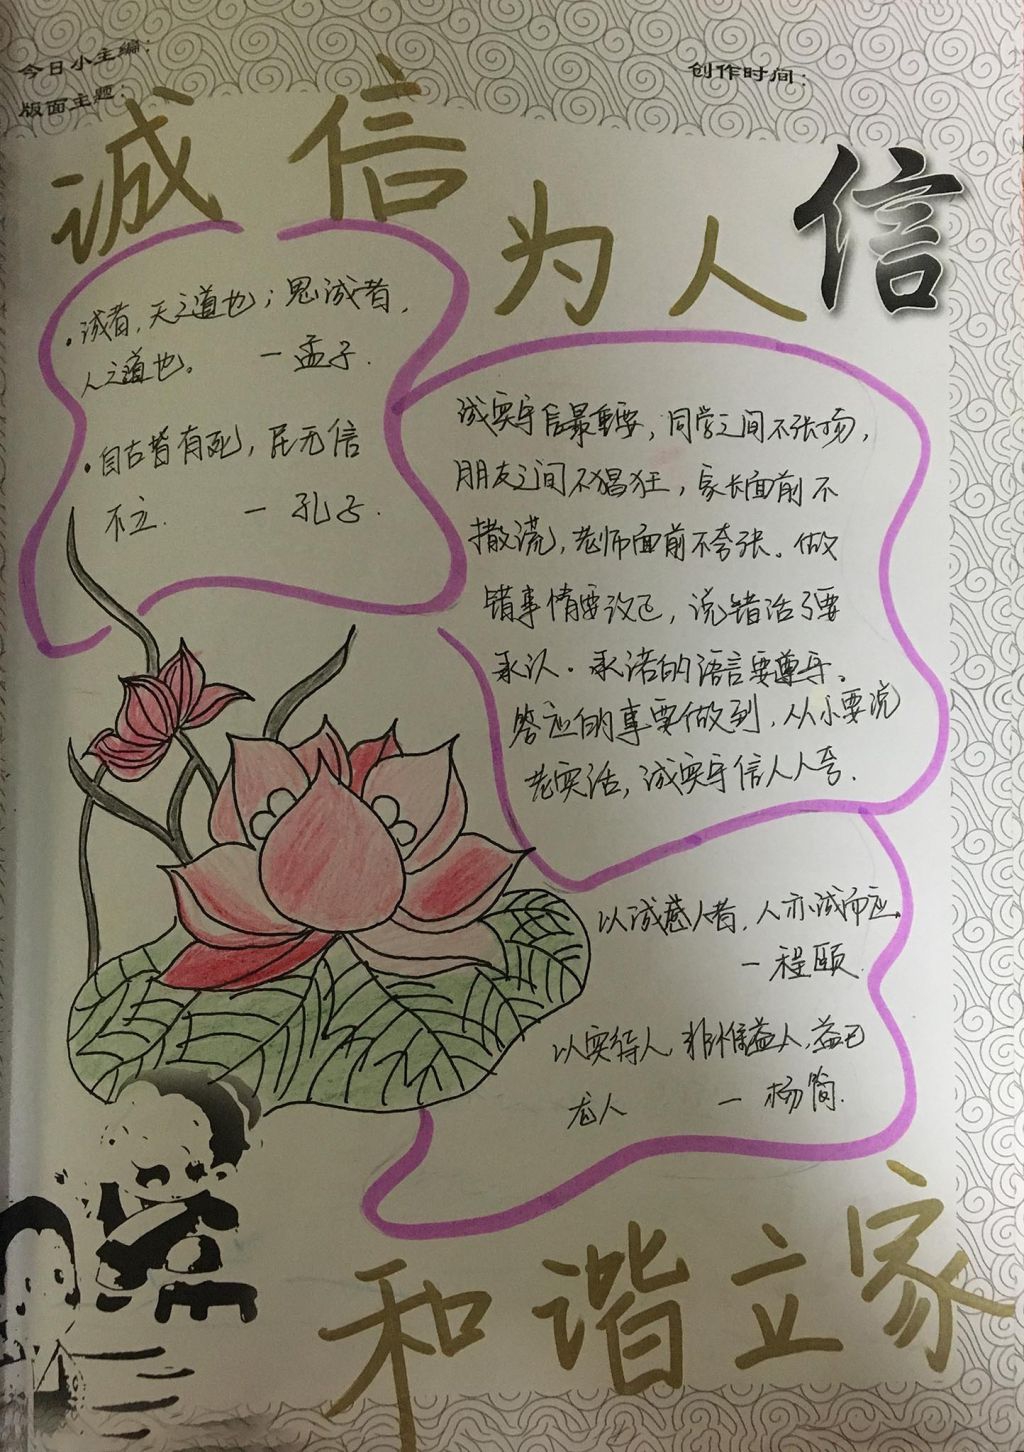 今日小主编:
版面主题:
创作时间:
诚信为人
信
·诚者,天之道也;思诚者,
人之道也。 一孟子.
·自古皆有死,民无信
不立. 一孔子.
诚实守信最重要,同学之间不张扬,
朋友之间不猖狂,家长面前不
撒谎,老师面前不夸张。做
错事情要改已,说错话了要
承认.承诺的语言要尊守。
答应的事要做到,从小要说
老实话,诚实守信人人夸.
以诚感人者,人亦诚而应.
一程颐.
以实待人,非惟益人,益己
尤人 一杨简.
和谐立家